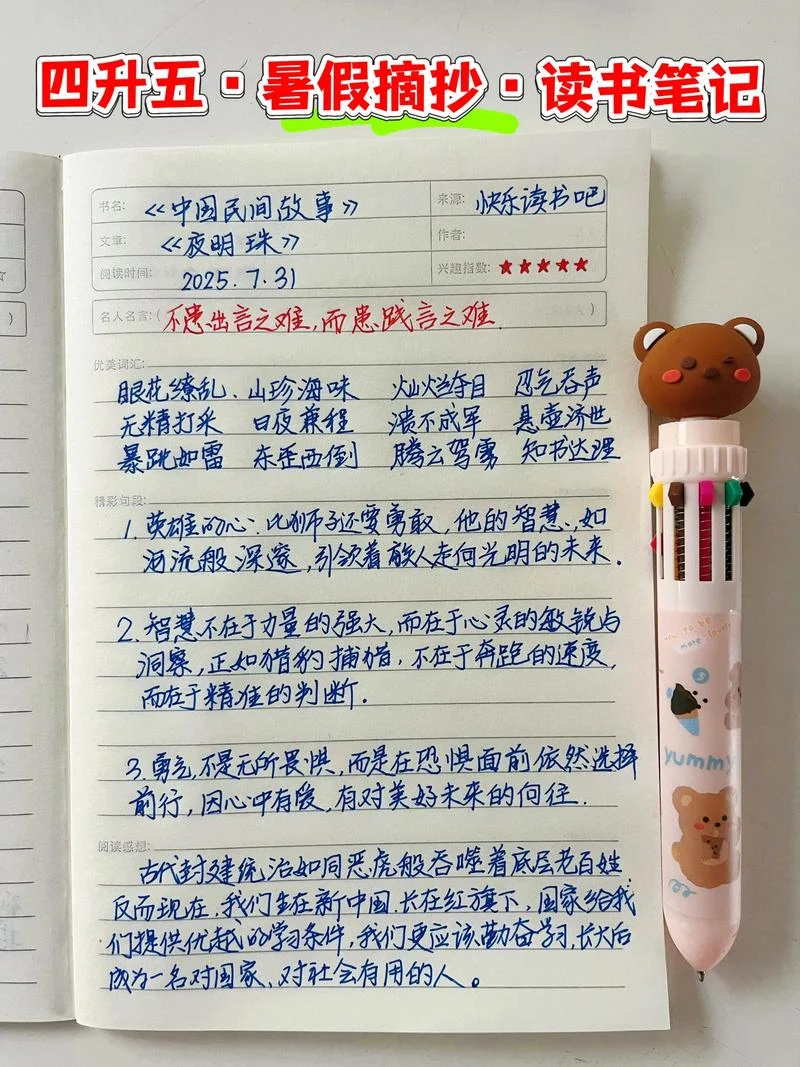 四升五·暑假摘抄·读书笔记
书名: 《中国民间故事》 来源: 快乐读书吧
文章: 《夜明珠》 作者:
阅读时间: 2025.7.31 兴趣指数: ★★★★★
名人名言:( 不患出言之难,而患践言之难. )
优美词汇:
眼花缭乱、山珍海味 灿烂夺目 忍气吞声
无精打采 日夜兼程 溃不成军 悬壶济世
暴跳如雷 东歪西倒 腾云驾雾 知书达理
精彩句段:
1. 英雄的心:比狮子还要勇敢,他的智慧,如
河流般深邃,引领着敌人走向光明的未来.
2. 智慧不在于力量的强大,而在于心灵的敏锐与
洞察,正如猎豹捕猎,不在于奔跑的速度,
而在于精准的判断.
3. 勇气,不是无所畏惧,而是在恐惧面前依然选择
前行,因心中有爱,有对美好未来的向往.
阅读感想:
古代封建统治如同恶虎般吞噬着底层老百姓,
反而现在,我们生在新中国,长在红旗下,国家给我
们提供优越的学习条件,我们更应该勤奋学习,长大后
成为一名对国家、对社会有用的人。
how to be
more lovely
yummy